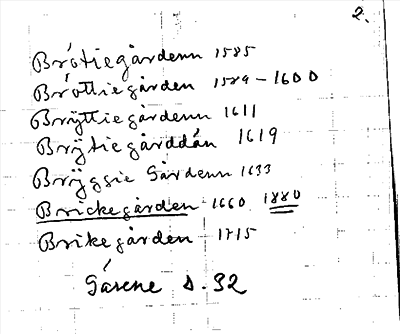 2.
Brótiegårdenn 1585
Bróttiegården 1589-1600
Brÿttiegårdenn 1611
Brÿtiegårddån 1619
Brÿggie Gårdenn 1633
Brickegården 1660 1880
Brikegården 1715